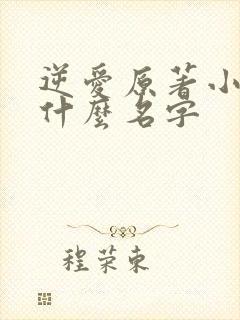 逆愛原著小
什麼名字
程荣東